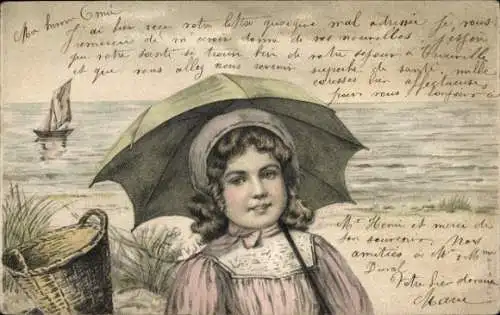 Ma bonne
J'ai bien reçu votre lettre quoique mal adressée je vous
remercie de m'avoir donné de vos nouvelles. J'espère
que votre santé se trouve bien de votre séjour à Trouville
et que vous allez nous revenir de santé. mille
caresses bien affectueuses
pour vous
Mr Henri et merci de
son souvenir. Nos
amitiés à Mr & Mme
Duval
Votre bien dévouée
Marie